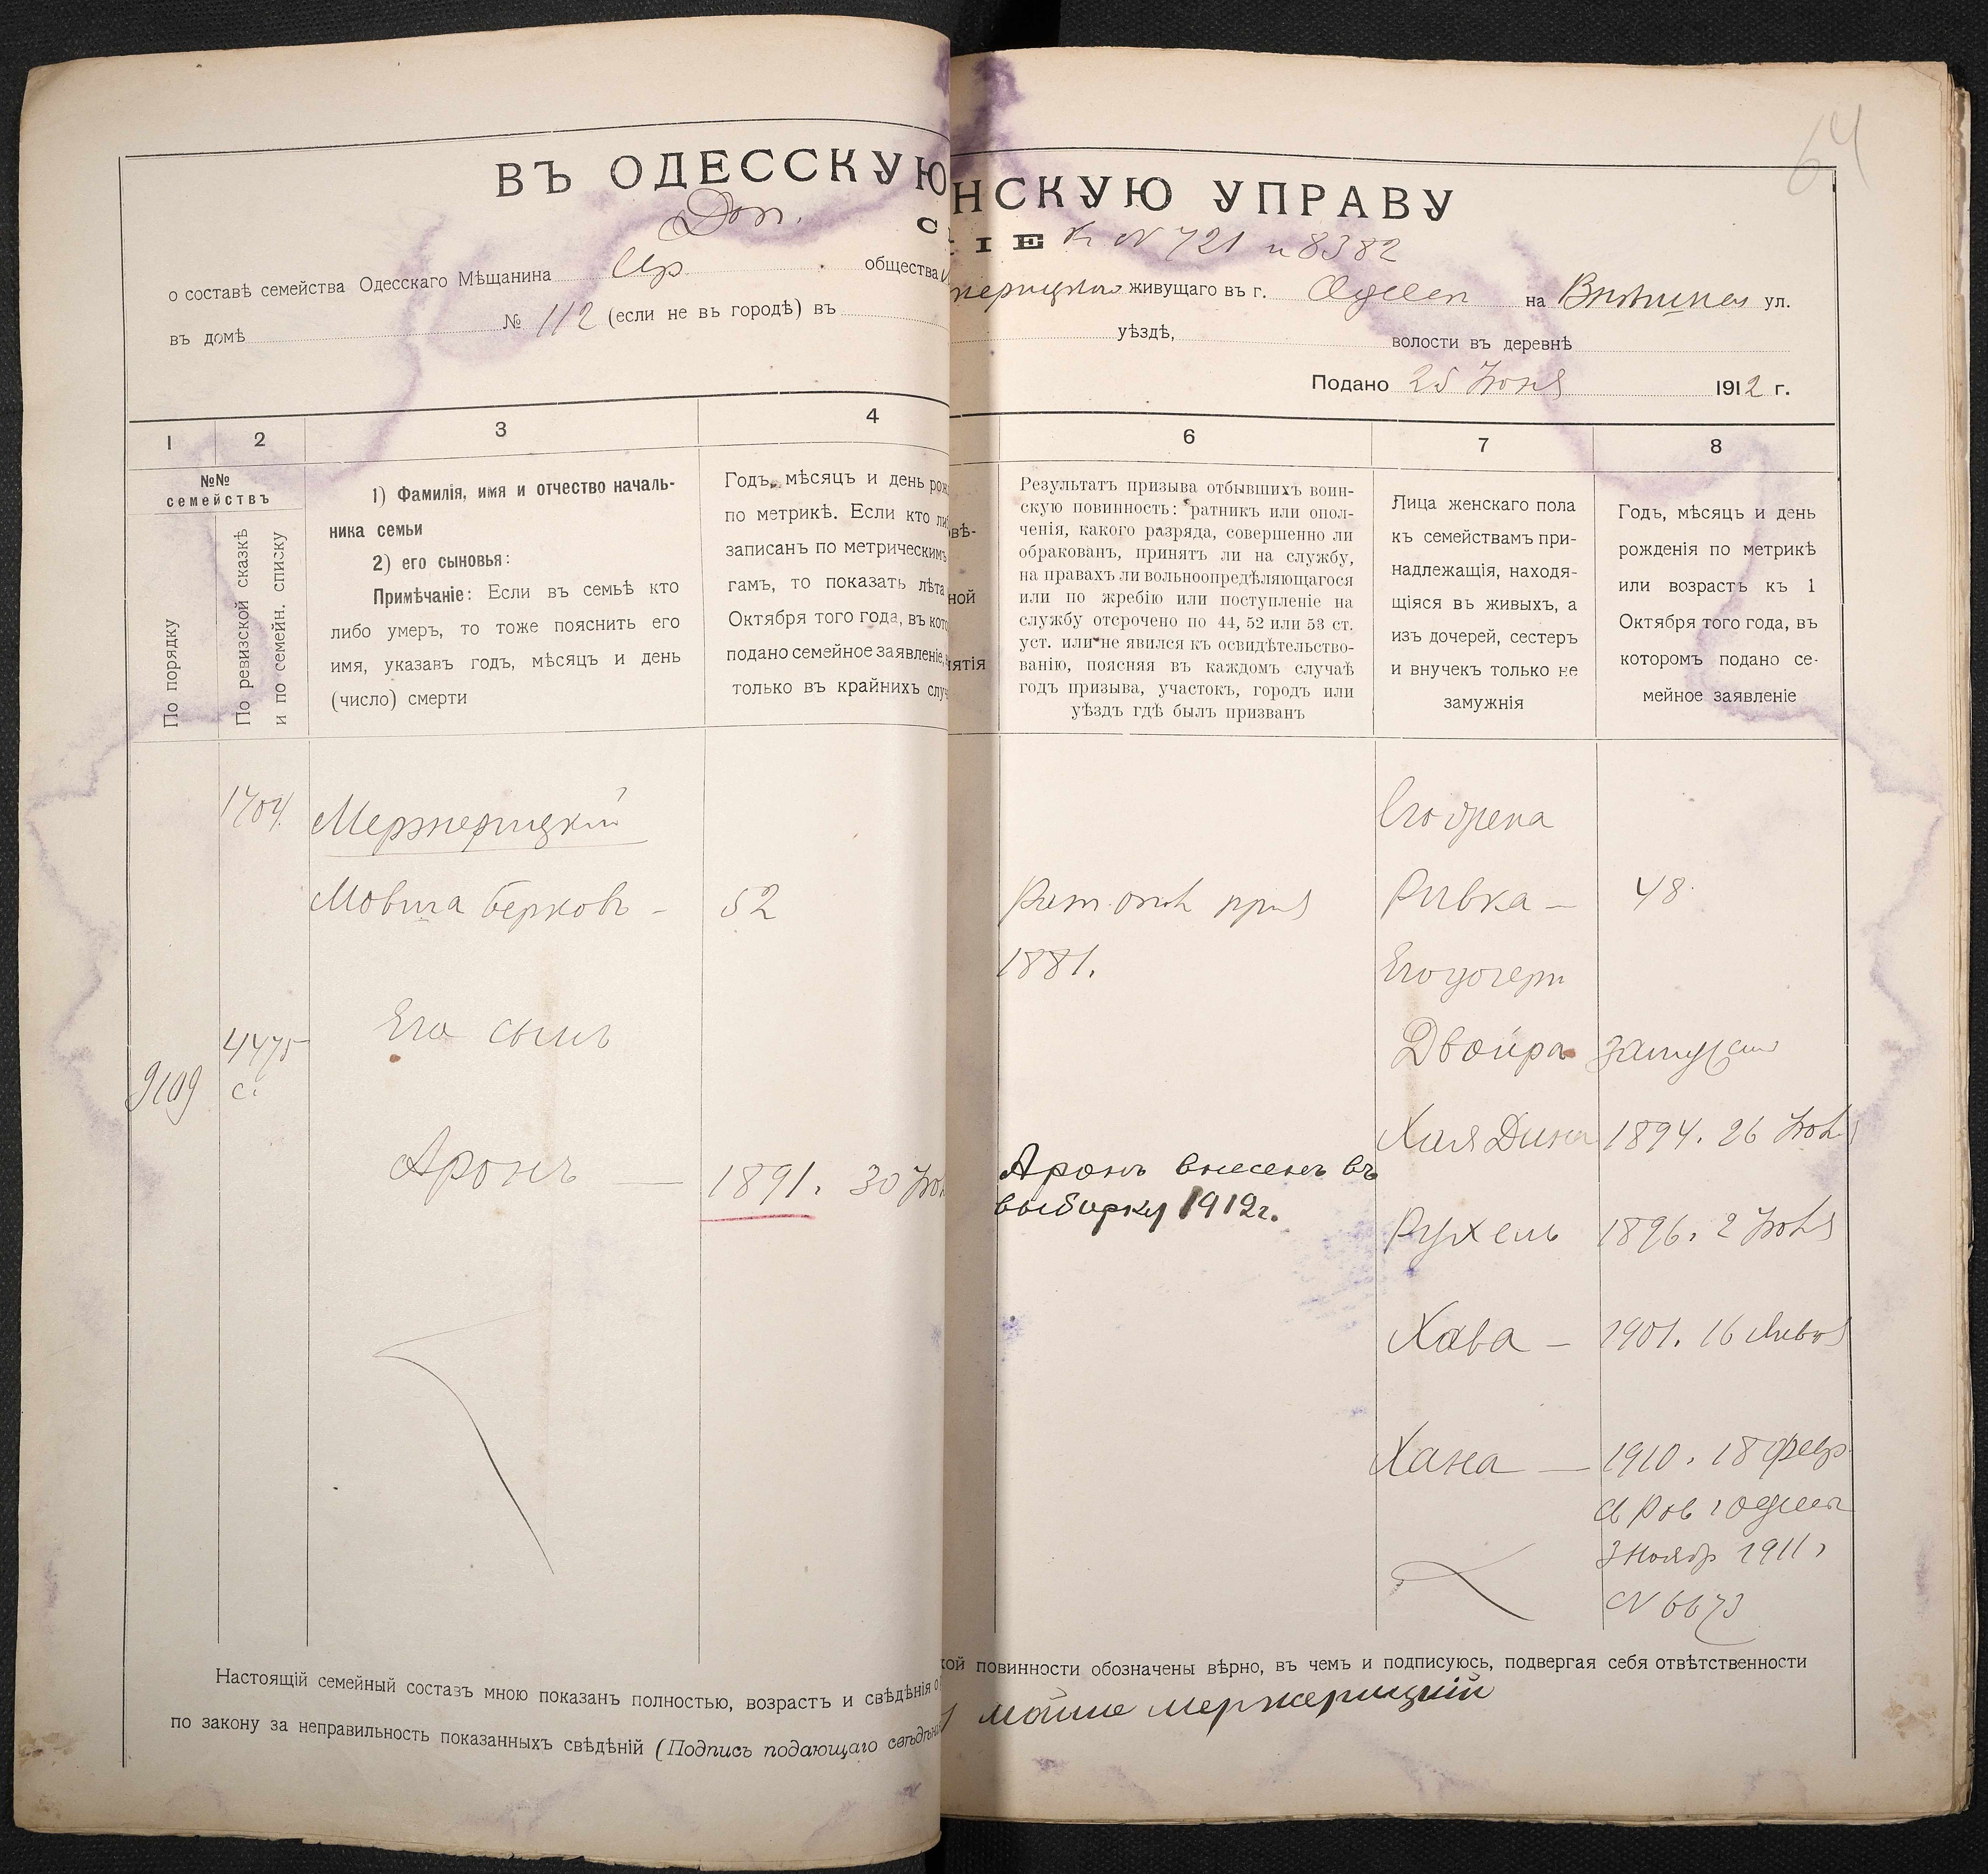 64
ВЪ ОДЕССКУЮ НСКУЮ УПРАВУ
Доп. къ № 721 и 8382
о составѣ семейства Одесскаго Мѣщанина Евр общества
живущаго въ г. Одессѣ на ул.
въ домѣ № 112 (если не въ городѣ) въ
уѣздѣ, волости въ деревнѣ
Подано 25 Іюня 1912 г.
1 2 3 4 6 7 8
№№ семействъ
По порядку
По ревизской сказкѣ и по семейн. списку
1) Фамилія, имя и отчество началь-
ника семьи
2) его сыновья:
Примѣчаніе: Если въ семьѣ кто
либо умеръ, то тоже пояснить его
имя, указавъ годъ, мѣсяцъ и день
(число) смерти
Годъ, мѣсяцъ и день рож
по метрикѣ. Если кто ли
записанъ по метрическимъ
гамъ, то показать лѣта
Октября того года, въ кото
подано семейное заявленіе,
только въ крайнихъ слу
вѣ-
ной
ятія
Результатъ призыва отбывшихъ воин-
скую повинность: ратникъ или опол-
ченія, какого разряда, совершенно ли
обракованъ, принятъ ли на службу,
на правахъ ли вольноопредѣляющагося
или по жребію или поступленіе на
службу отсрочено по 44, 52 или 53 ст.
уст. или не явился къ освидѣтельство-
ванію, поясняя въ каждомъ случаѣ
годъ призыва, участокъ, городъ или
уѣздъ гдѣ былъ призванъ
Лица женскаго пола
къ семействамъ при-
надлежащія, находя-
щіяся въ живыхъ, а
изъ дочерей, сестеръ
и внучекъ только не
замужнія
Годъ, мѣсяцъ и день
рожденія по метрикѣ
или возрастъ къ 1
Октября того года, въ
которомъ подано се-
мейное заявленіе
1704.
Межерицкій
Мовша Берковъ – 52
1881.
Его жена
Ривка – 48
Его дочери
Двойра замужня
9109
4475
с.
Его сынъ
Аронъ — 1891. 30 Іюн
Аронъ внесенъ въ
выборку 1912г.
Хая Дина 1894. 26 Іюня
Рухель 1896. 2 Іюня
Хава – 1901. 16 Январ
Хана — 1910. 18 февр
3 Ноябр 1911 г
№ 6673
Настоящій семейный составъ мною показанъ полностью, возрастъ и свѣдѣнія о
кой повинности обозначены вѣрно, въ чемъ и подписуюсь, подвергая себя отвѣтственности
по закону за неправильность показанныхъ свѣдѣній (Подпись подающаго свѣдѣнія
Мойше Мержерицкій